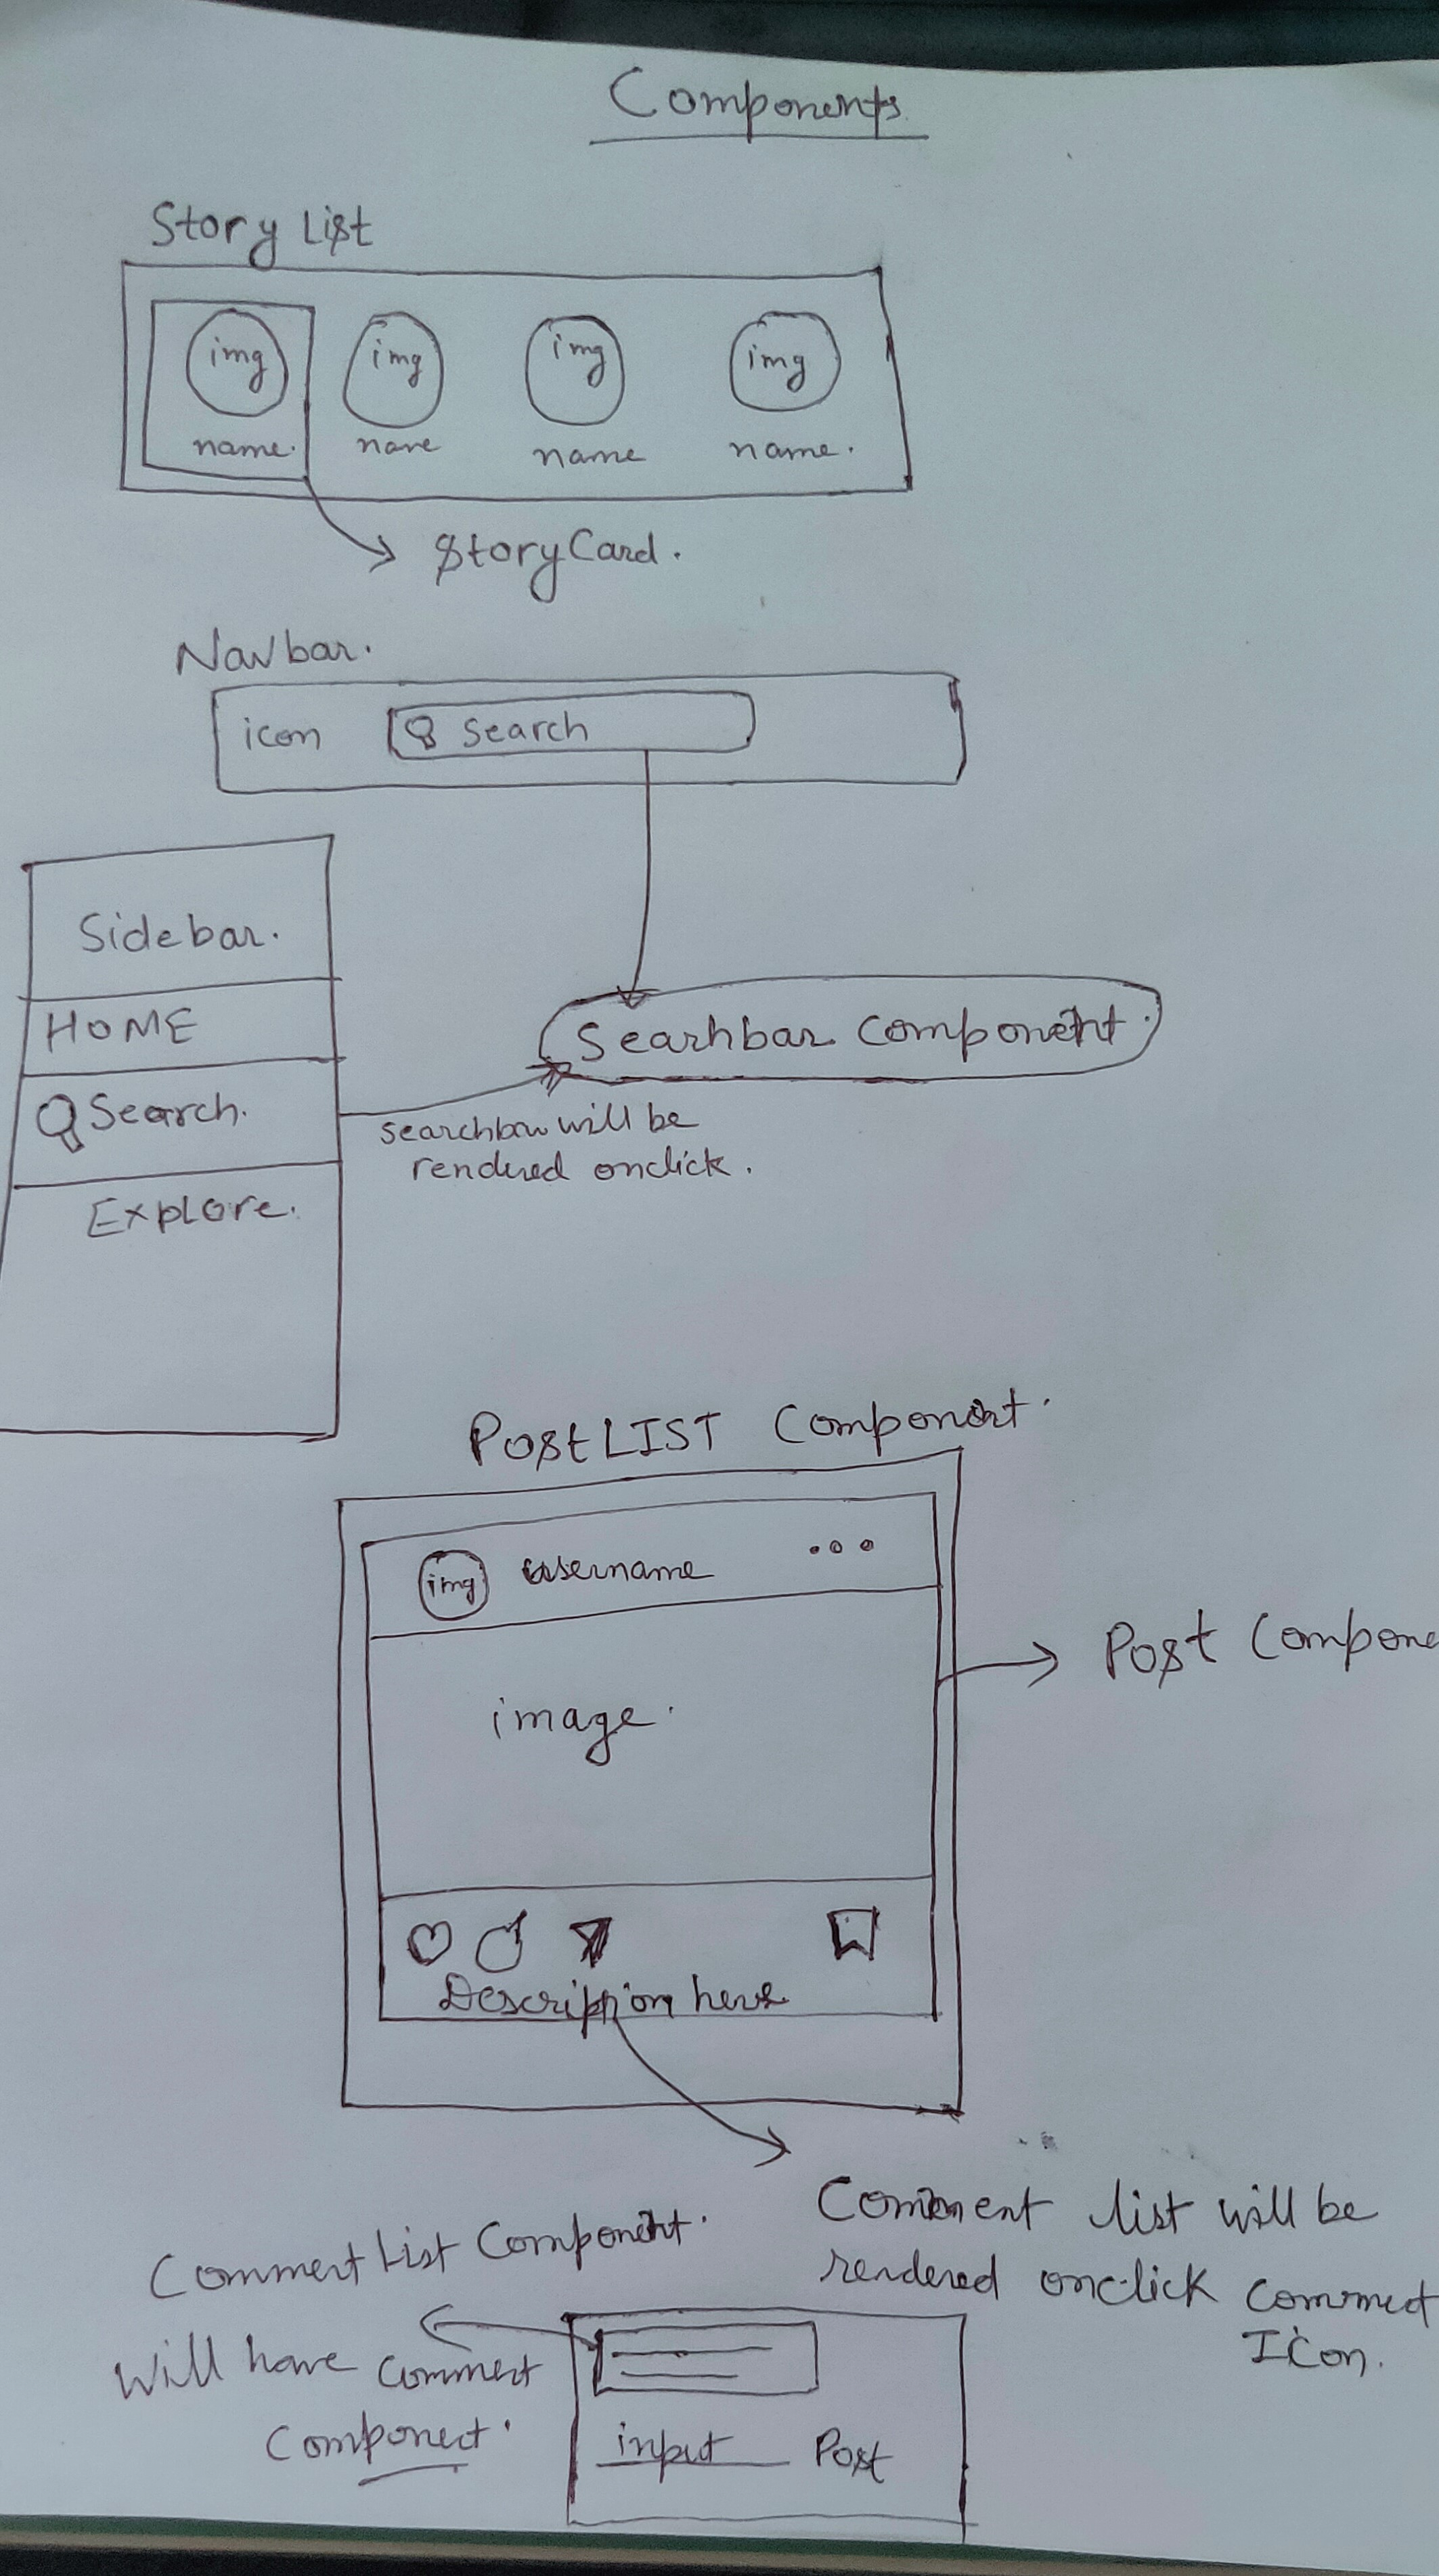 Components
Story List
img img img img
name. name name name.
StoryCard.
Navbar.
icon Search
Sidebar.
HOME
Search.
Explore.
Searhbar Component.
searchbar will be
rendered onclick.
PostLIST Component.
img username
Post Compone
image.
Description here
Comment list will be
rendered onclick comment
Icon.
CommentList Component.
Will have comment
Component.
input Post